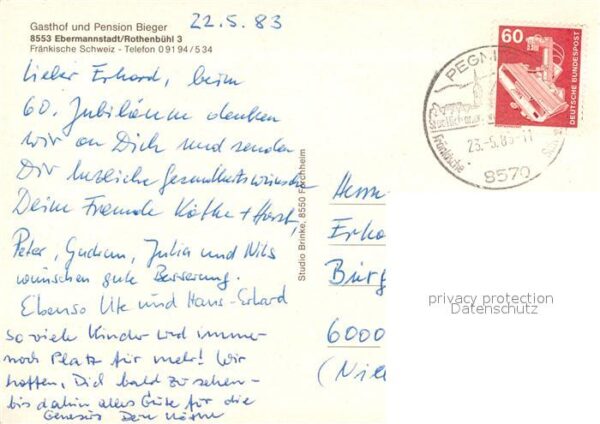 Gasthof und Pension Bieger
8553 Ebermannstadt/Rothenbühl 3
Fränkische Schweiz - Telefon 0 91 94 / 5 34
22.5.83
Lieber Erhard, beim
60. Jubiläum denken
wir an Dich und senden
Dir herzliche Gesundheitswünsche
Deine Freunde Käthe + Horst,
Peter, Gudrun, Julia und Nils
wünschen gute Besserung.
Ebenso Ute und Hans-Erhard
so viele Kinder und immer
noch Platz für mehr! Wir
hoffen, Dich bald zu sehen -
bis dahin alles Gute für die
Genesung Dein
Studio Brinke, 8550 Forchheim
60
DEUTSCHE BUNDESPOST
PEGNI
Fränkische
23.-5.83-11
8570
Herrn
Erha
Bürg
6000
(Nie
privacy protection
Datenschutz